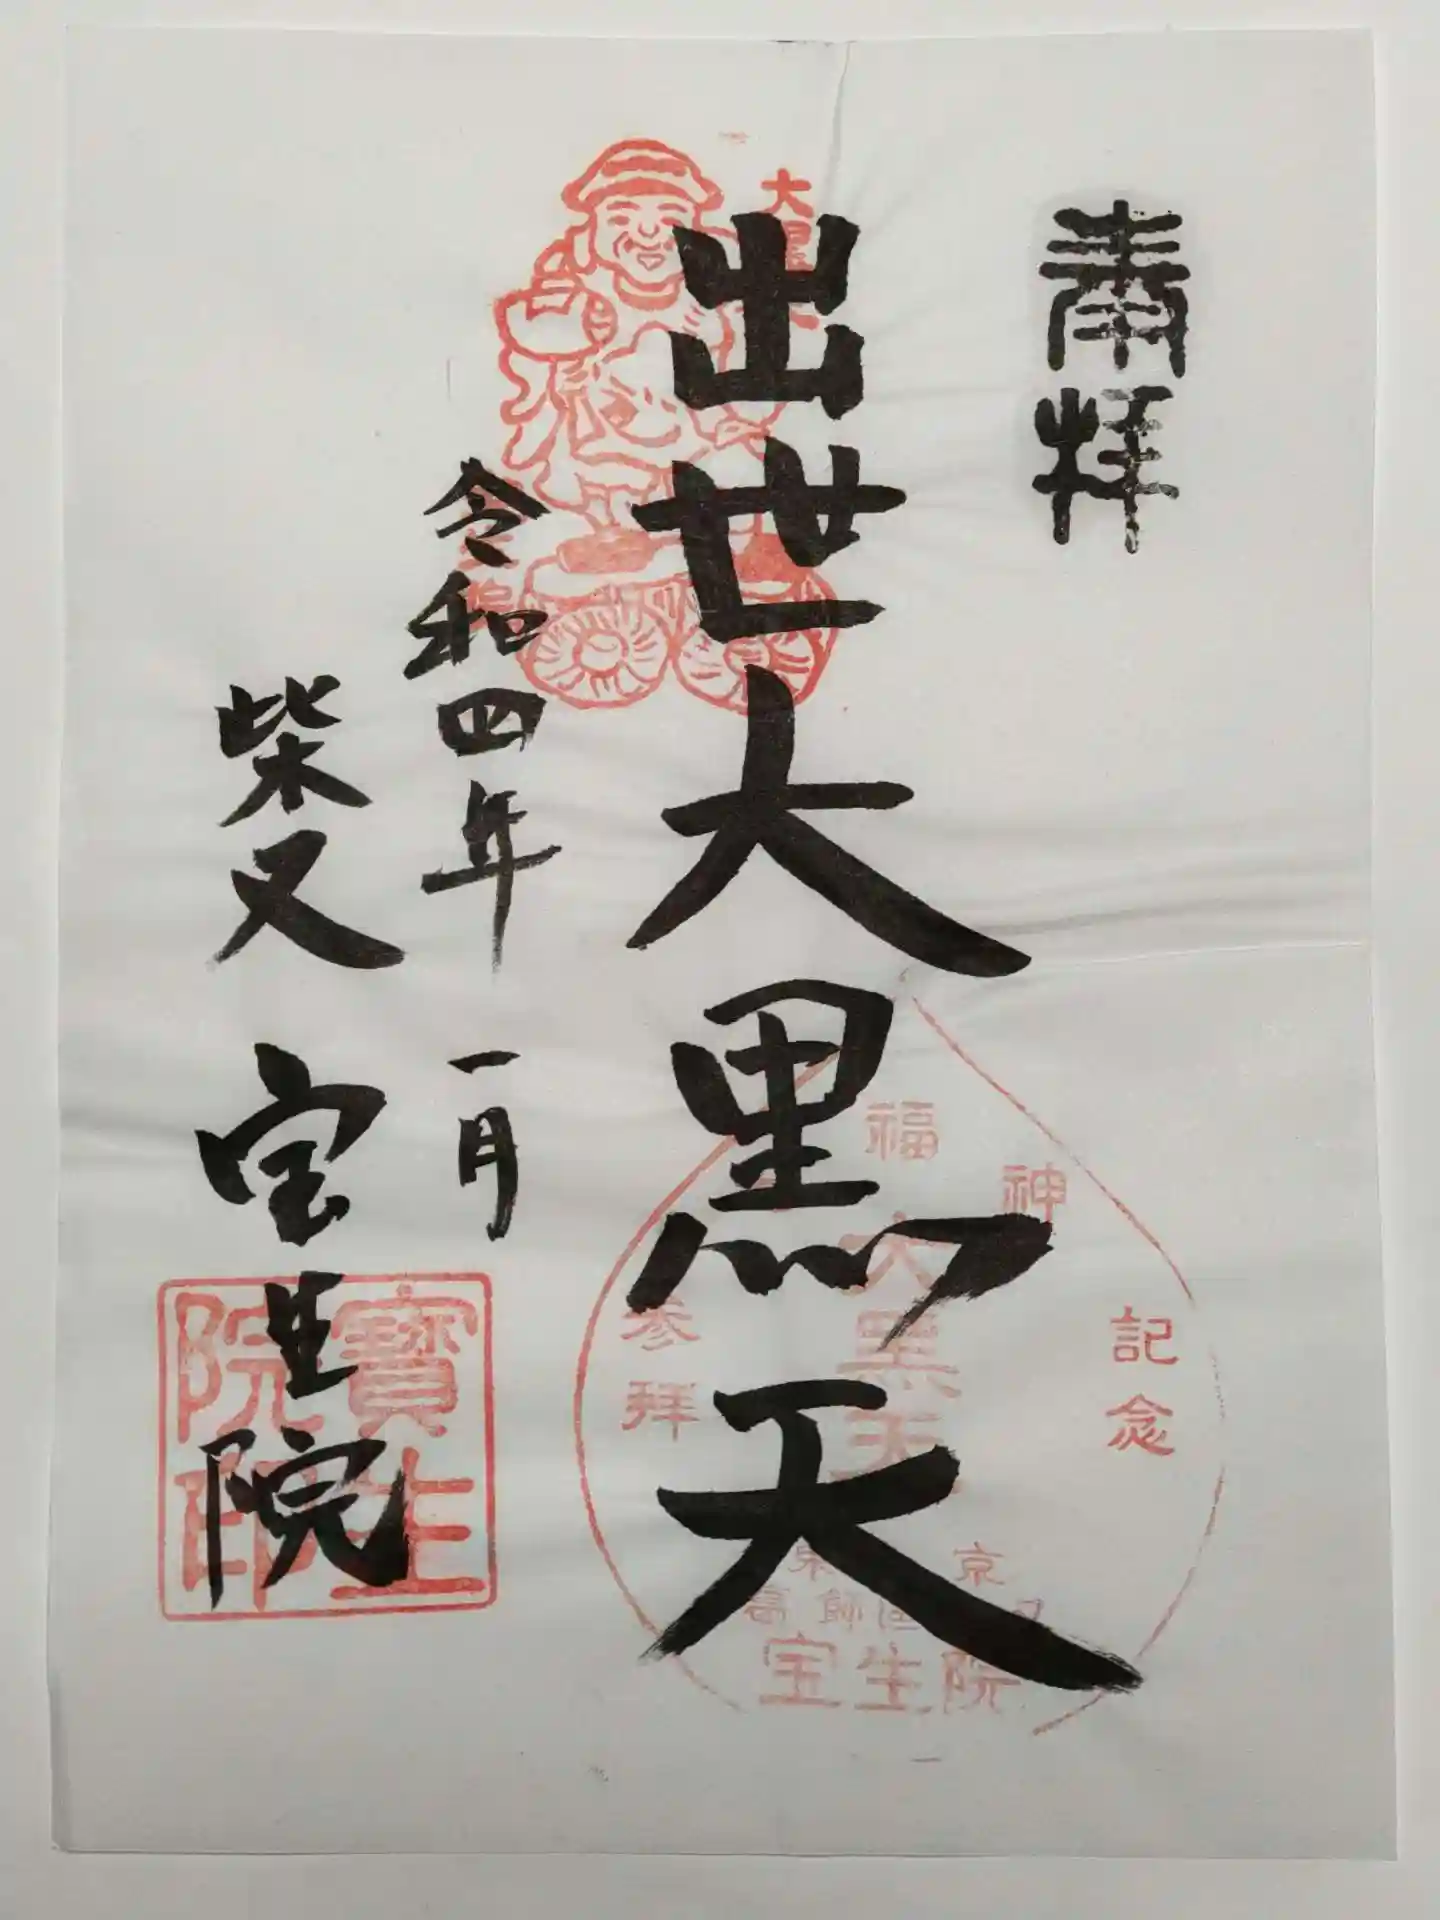 奉拝
出世大黒天
令和四年 一月
柴又 宝生院
寶生
院印
福神
記念
参拝
大黒天
宝生院